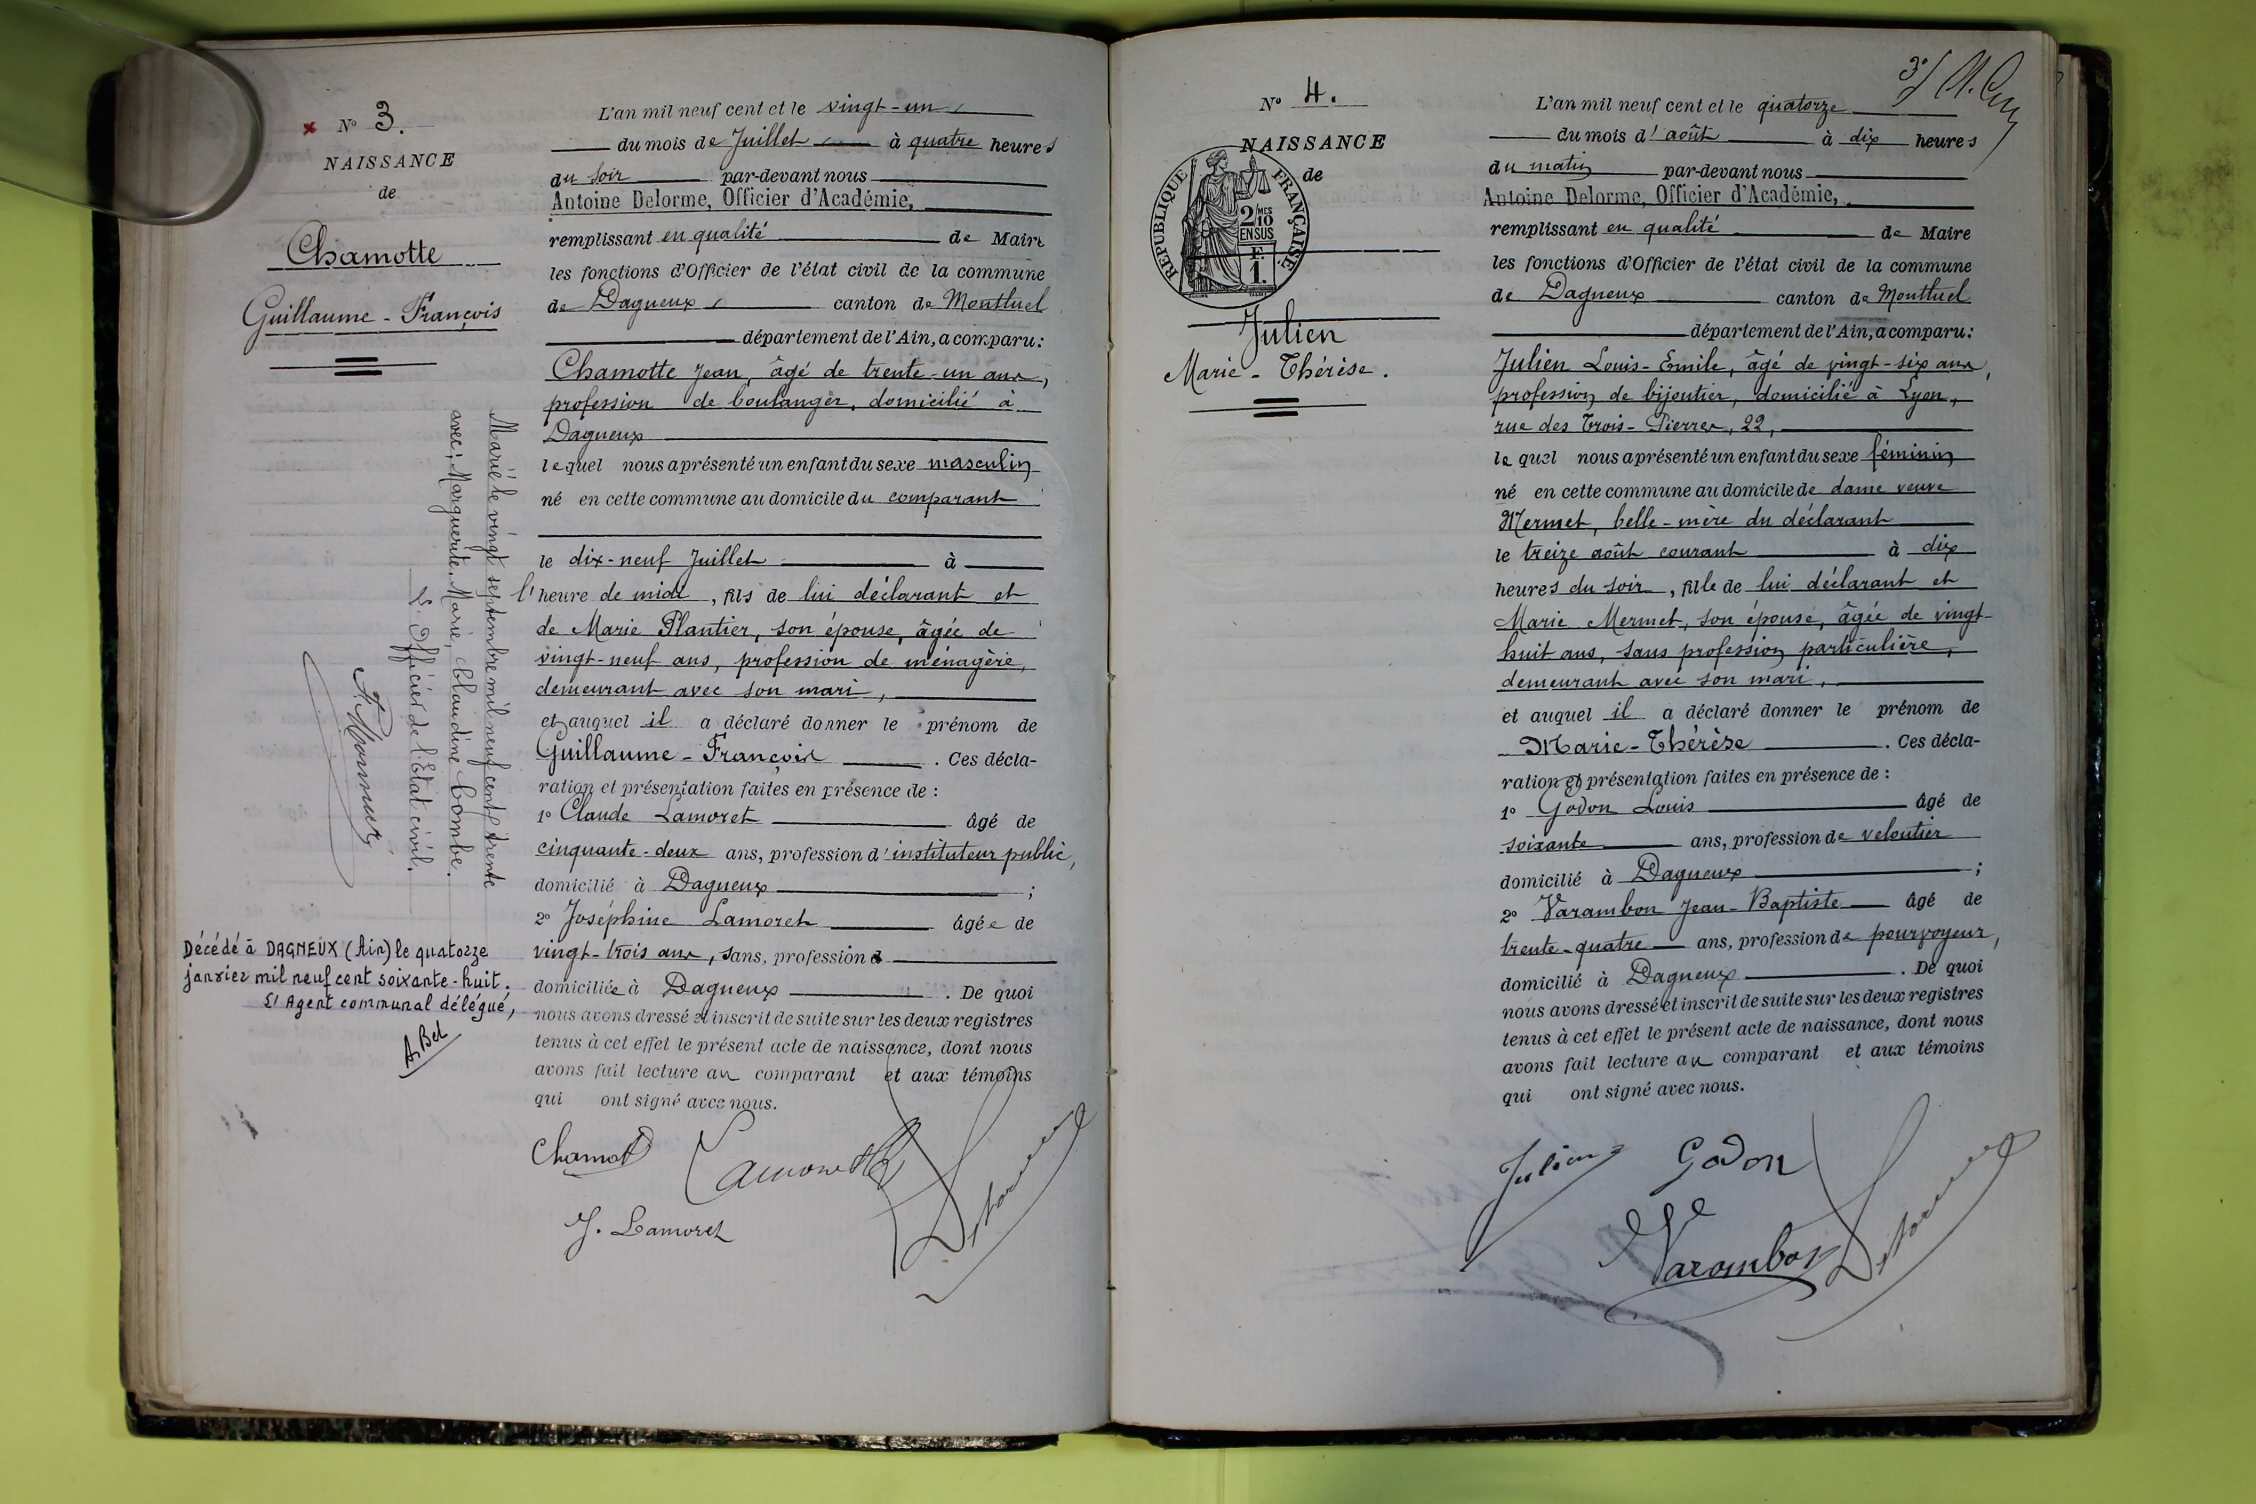 N° 3.
NAISSANCE
de
Chamotte
Guillaume - François
Marié le vingt septembre mil neuf cent trente
avec: Marguerite, Marie, Claudine Combe.
L'Officier de l'Etat civil.
Décédé à DAGNEUX (Ain) le quatorze
janvier mil neuf cent soixante-huit.
L'Agent communal délégué,
A. Bel
L'an mil neuf cent et le vingt-un
du mois de Juillet à quatre heures
du soir par-devant nous
Antoine Delorme, Officier d'Académie,
remplissant en qualité de Maire
les fonctions d'Officier de l'état civil de la commune
de Dagneux canton de Montluel
département de l'Ain, a comparu:
Chamotte Jean, âgé de trente-un ans,
profession de boulanger, domicilié à
Dagneux
lequel nous a présenté un enfant du sexe masculin
né en cette commune au domicile du comparant
le dix-neuf Juillet à
l'heure de midi, fils de lui déclarant et
de Marie Plantier, son épouse, âgée de
vingt-neuf ans, profession de ménagère,
demeurant avec son mari,
et auquel il a déclaré donner le prénom de
Guillaume-François. Ces décla-
ration et présentation faites en présence de :
1° Claude Lamoret âgé de
cinquante-deux ans, profession d'instituteur public,
domicilié à Dagneux ;
2° Joséphine Lamoret âgée de
vingt-trois ans, sans, profession
domiciliée à Dagneux. De quoi
nous avons dressé et inscrit de suite sur les deux registres
tenus à cet effet le présent acte de naissance, dont nous
avons fait lecture au comparant et aux témoins
qui ont signé avec nous.
Chamott Lamoret
Delorme
J. Lamoret
3e
N° 4.
NAISSANCE
de
RÉPUBLIQUE FRANÇAISE
2/10MES
EN SUS
F.
1.
Julien
Marie - Thérèse.
L'an mil neuf cent et le quatorze
du mois d'août à dix heures
du matin par-devant nous
Antoine Delorme, Officier d'Académie,
remplissant en qualité de Maire
les fonctions d'Officier de l'état civil de la commune
de Dagneux canton de Montluel
département de l'Ain, a comparu:
Julien Louis-Emile, âgé de vingt-six ans,
profession de bijoutier, domicilié à Lyon,
rue des Trois-Pierres, 22,
lequel nous a présenté un enfant du sexe féminin
né en cette commune au domicile de dame veuve
Mermet, belle-mère du déclarant
le treize août courant à dix
heures du soir, fille de lui déclarant et
Marie Mermet, son épouse, âgée de vingt-
huit ans, sans profession particulière,
demeurant avec son mari,
et auquel il a déclaré donner le prénom de
Marie-Thérèse. Ces décla-
ration et présentation faites en présence de :
1° Godon Louis âgé de
soixante ans, profession de veloutier
domicilié à Dagneux ;
2° Varambon Jean-Baptiste âgé de
trente-quatre ans, profession de pourvoyeur,
domicilié à Dagneux. De quoi
nous avons dressé et inscrit de suite sur les deux registres
tenus à cet effet le présent acte de naissance, dont nous
avons fait lecture au comparant et aux témoins
qui ont signé avec nous.
Julien Godon
Varambon Delorme